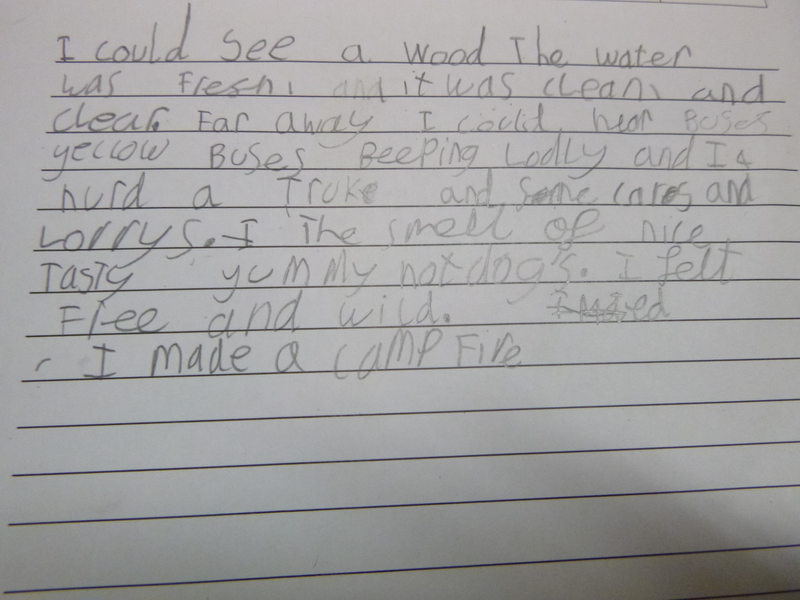 I could see a wood The water
was Fresh, and it was clean, and
clear. Far away I could hear Buses
yellow Buses Beeping Lodly and I
hurd a Truke and some cares and
Lorrys. I The smell of nice
Tasty yummy hotdog's. I felt
Free and wild.
I made a camp Fire